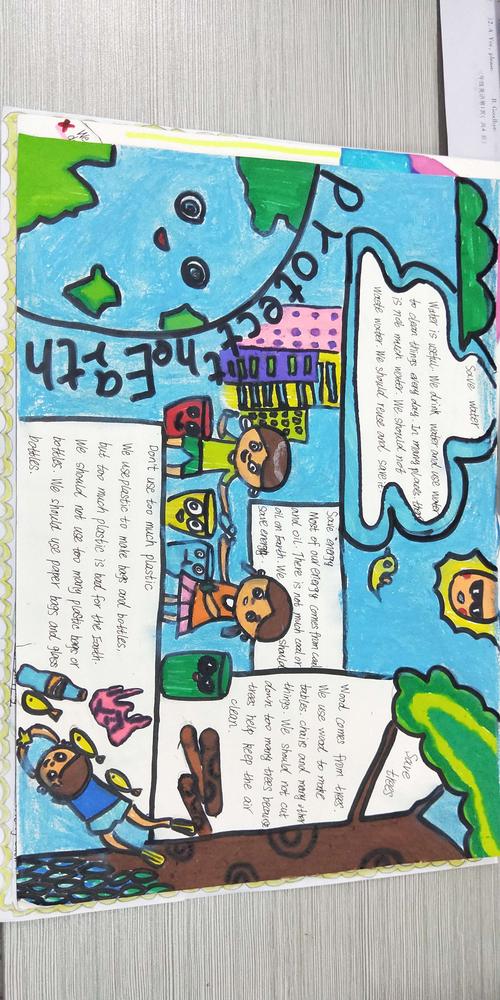 Protect
the Earth
Save water
Water is useful. We drink water and use water
to clean things every day. In many places there
is not much water. We should not
waste water. We should reuse and save it
Save energy
Most of our energy comes from coal
and oil. There is not much coal or
oil on Earth. We should
save energy.
Save
trees
Wood comes from trees.
We use wood to make
tables chairs and many other
things. We should not cut
down too many trees because
trees help keep the air
clean.
Don't use too much plastic
We use plastic to make bags and bottles.
but too much plastic is bad for the Earth.
We should not use too many plastic bags or
bottles. We should use paper bags and glass
bottles.
12. A. Yes, please. B. Goodbye.